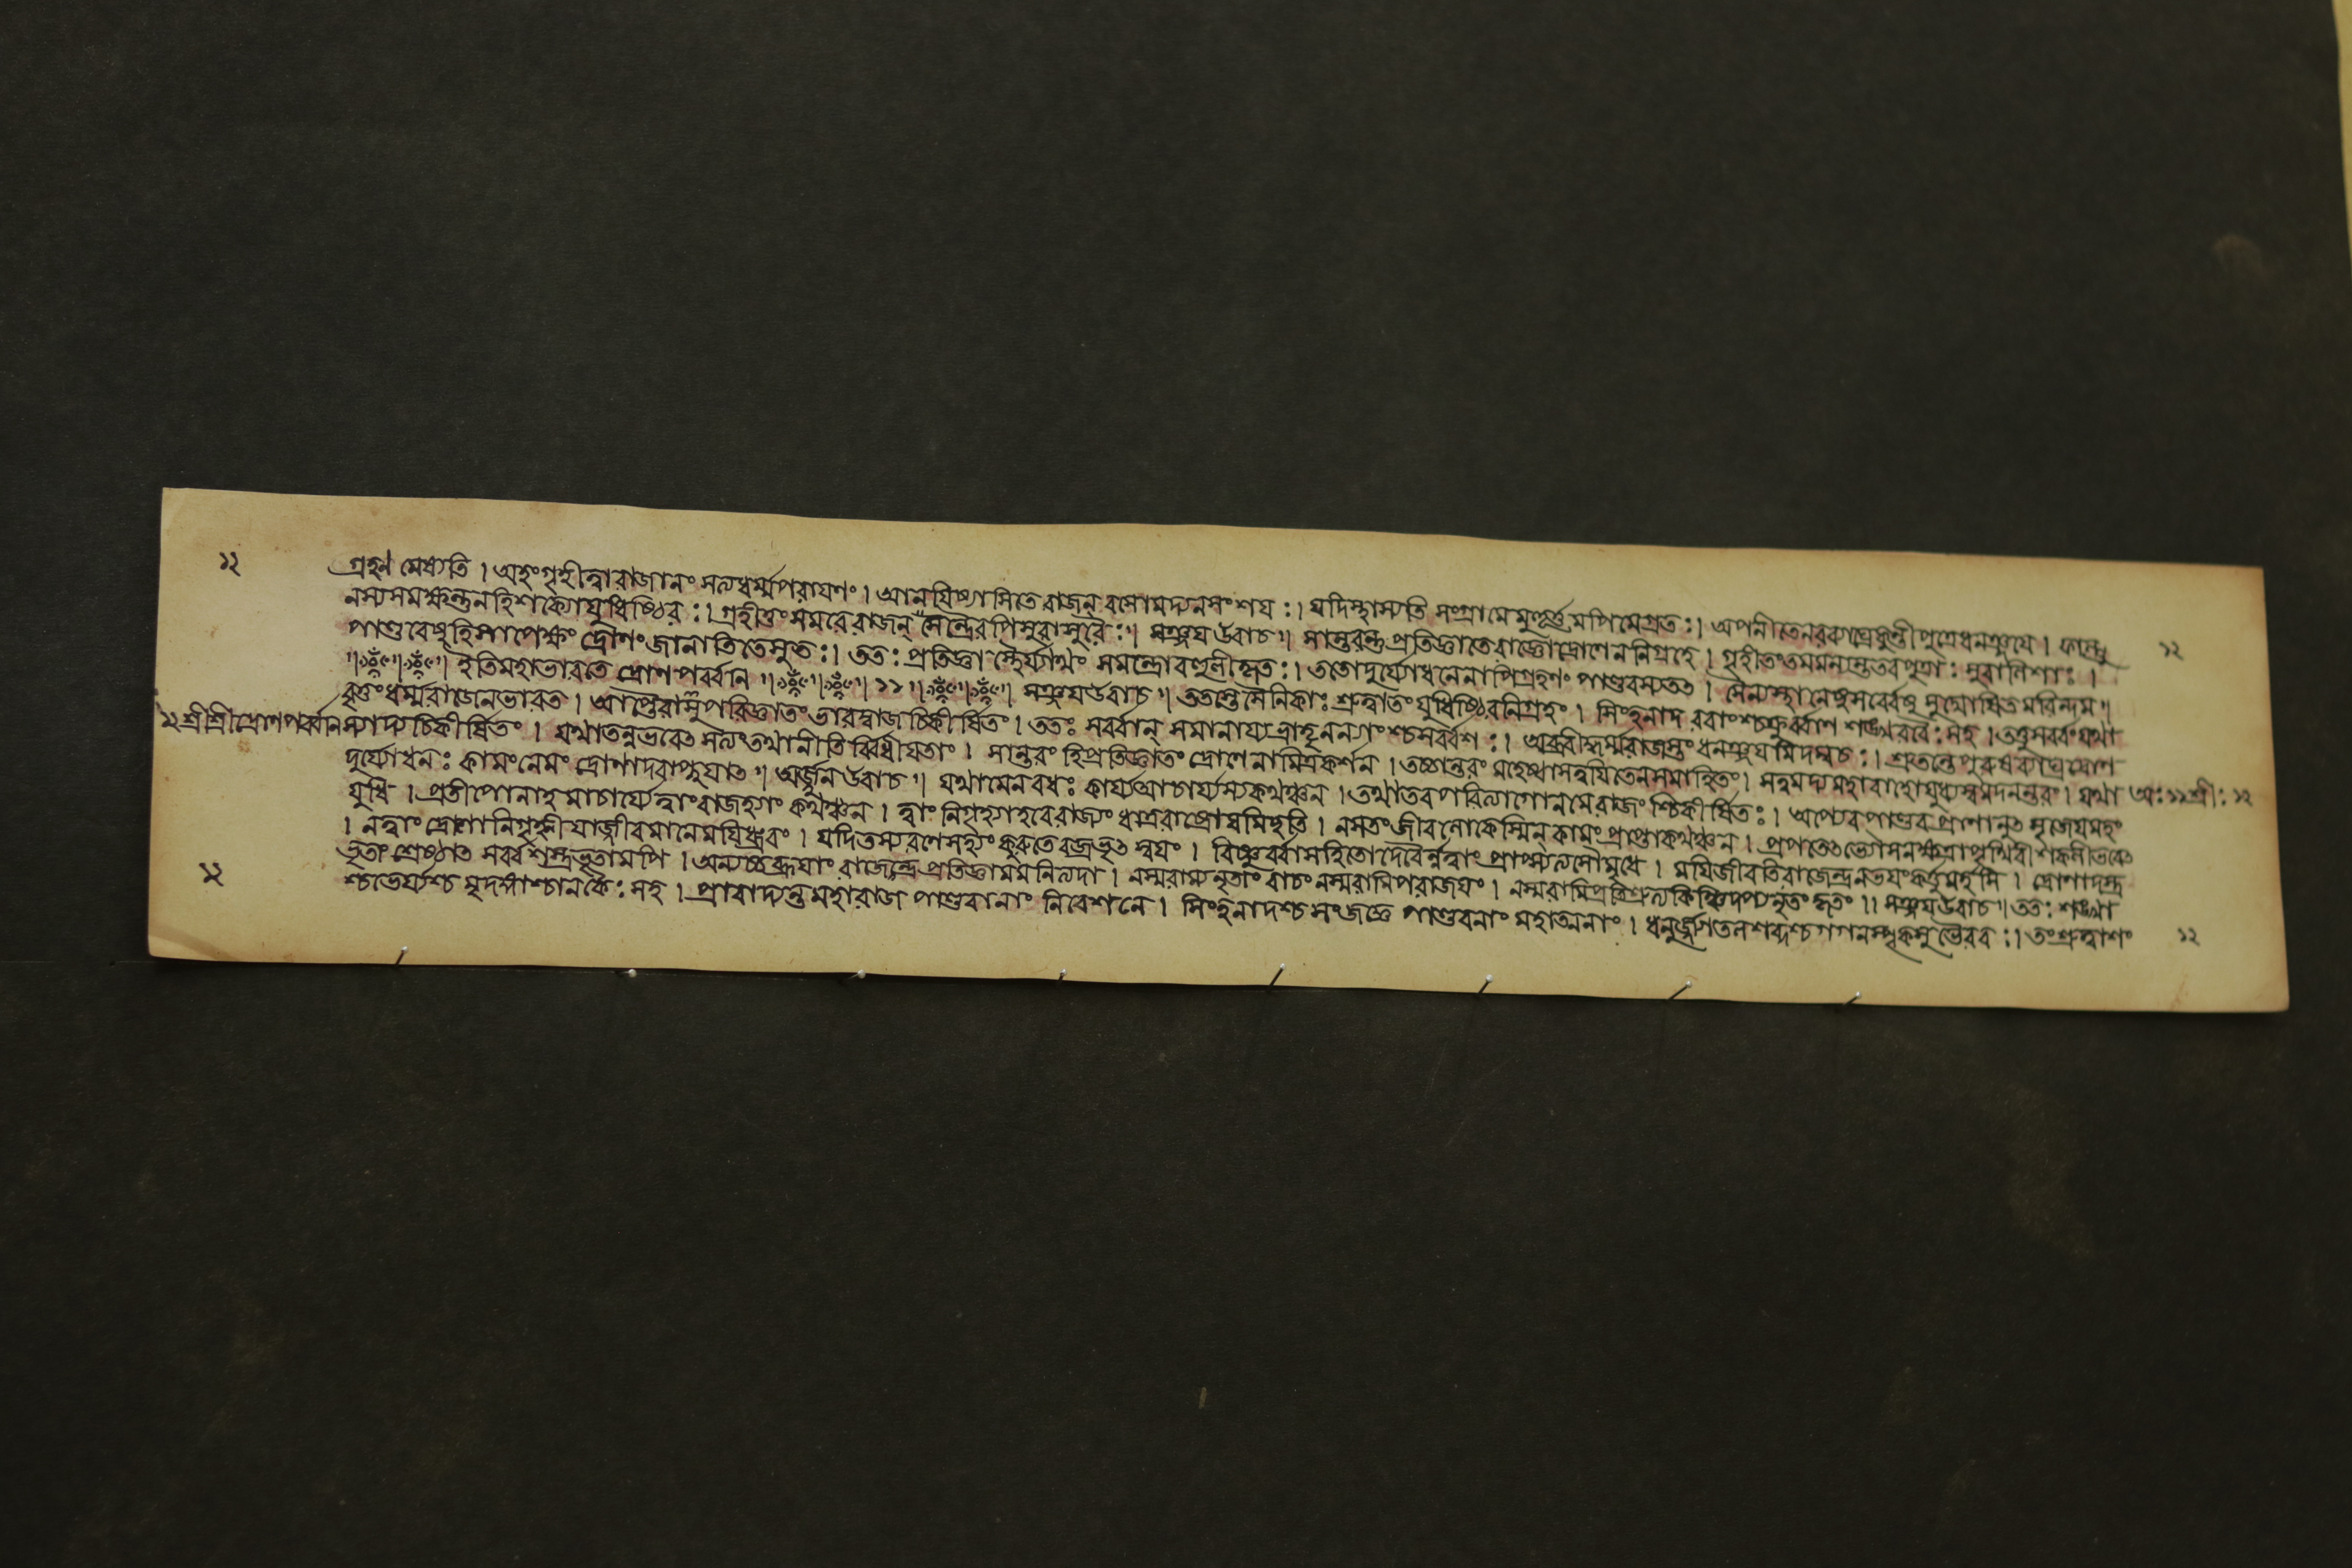 ১২ গ্রহণমেষ্যতি । অহং গৃহীত্বারাজানং সত্যধর্ম্মপরায়ণং । আনয়িষ্যামিতেরাজন্ বসোমদ্যনসংশয়ঃ । যদিস্থাস্যতি সংগ্রামেমুহূর্ত্তমপিমেগ্রতঃ । অপনীতেনরব্যাঘ্রেকুন্তীপুত্রেধনঞ্জয়ে । ফাল্গু
নস্যসমক্ষন্তুনহিশক্যোযুধিষ্ঠিরঃ । গ্রহীতুং সমরেরাজন্ সেন্দ্রৈরপিসুরাসুরৈঃ ৷৷ সঞ্জয়উবাচ ৷৷ সান্তরন্তুপ্রতিজ্ঞাতেরাজ্ঞোদ্রোণেননিগ্রহে । গৃহীতংতমমন্যন্ততবপুত্রাঃ সুবালিশাঃ । ১২
পাণ্ডবেষুহিসাপেক্ষং দ্রোণং জানাতিতেসুতঃ । ততঃ প্রতিজ্ঞাস্থৈর্য্যার্থং সমন্ত্রোবহুলীকৃতঃ । ততোদুর্য্যোধনেনাপিগ্রহণং পাণ্ডবস্যতৎ । সৈন্যস্থানেষুসর্ব্বেষু সুঘোষিতমরিন্দম ৷৷
ইতিমহাভারতে দ্রোণপর্ব্বনি ৷৷ ১১ ৷৷ সঞ্জয়উবাচ ৷৷ ততস্তেসৈনিকাঃ শ্রুত্বাতং যুধিষ্ঠিরনিগ্রহং । সিংহনাদরবাংশ্চক্রুর্ব্বাণশঙ্খরবৈঃ সহ । তত্তুসর্ব্বংযথা
বৃত্তং ধর্ম্মরাজেনভারত । আপ্তৈরাসুপরিজ্ঞাতং ভারদ্বাজচিকীর্ষিতং । ততঃ সর্ব্বান্ সমানায্যভ্রাতৃনন্যাংশ্চসর্ব্বশঃ । অব্রবীদ্ধর্ম্মরাজস্তুং ধনঞ্জয়মিদম্বচঃ । শ্রুতন্তেপুরুষব্যাঘ্রদ্রোণ
১২ শ্রীশ্রীদ্রোণপর্ব্বনি স্যাদ্যচিকীর্ষিতং । যথাতন্নভবেৎসত্যংতথানীতির্ব্বিধীয়তাং । সান্তরং হিপ্রতিজ্ঞাতং দ্রোণেনামিত্রকর্শন । তচ্চান্তরং মহেষ্বাসত্বয়িতেনসমাহিতং । সত্বমদ্যমহাবাহোযুধ্যস্বমদনন্তরং । যথা অঃ ১১ শ্রীঃ ১২
দুর্য্যোধনঃ কামংনেমং দ্রোণাদবাপ্নুয়াৎ ৷৷ অর্জ্জুনউবাচ ৷৷ যথামেনবধঃ কার্য্যআচার্য্যস্যকথঞ্চন । তথাতবপরিত্যাগোনমেরাজংশ্চিকীর্ষিতঃ । অপ্যেবপাণ্ডবপ্রাণানুৎসৃজেয়মহং
যুধি । প্রতীপোনাহমাচার্য্যেত্বাংরাজহ্যাং কথঞ্চন । ত্বাং নিগৃহ্যাহবেরাজ্যং ধার্ত্তরাষ্ট্রোয়মিচ্ছতি । নসতংজীবলোকেস্মিন্ কামংপ্রাপ্তাকথঞ্চন । প্রপতেৎদ্যৌঃসনক্ষত্রাপৃথিবীশকলীভবেৎ
। নত্বাংদ্রোণোনিগৃহ্নীয়াজ্জীবমানেময়িধ্রুবং । যদিতস্যরণেসহ্যং কুরুতেবজ্রভৃৎস্বয়ং । বিষ্ণুর্ব্বাসহিতোদেবৈর্ন্নত্বাং প্রাপ্স্যত্যসৌমৃধে । ময়িজীবতিরাজেন্দ্রনভয়ংকর্ত্তুমর্হসি । দ্রোণাদস্ত্র
ভৃতাং শ্রেষ্ঠাৎসর্ব্বশস্ত্রভৃতামপি । অন্যচ্চব্রূয়াং রাজেন্দ্রপ্রতিজ্ঞামমনিত্যদা । নস্মরাম্যনৃতাং বাচং নস্মরামিপরাজয়ং । নস্মরামিপ্রতিশ্রুত্যকিঞ্চিদপ্যনৃতং কৃতং ৷৷ সঞ্জয়উবাচ ৷৷ ততঃ শঙ্খা
১২ শ্চভের্য্যশ্চ মৃদঙ্গাশ্চানকৈঃ সহ । প্রাবাদ্যন্তমহারাজ পাণ্ডবানাং নিবেশনে । সিংহনাদশ্চসংজজ্ঞে পাণ্ডবনাং মহাত্মনাং । ধনুর্জ্যাতলশব্দশ্চগগনস্পৃক্সুভৈরবঃ । তংশ্রুত্বাশং ১২